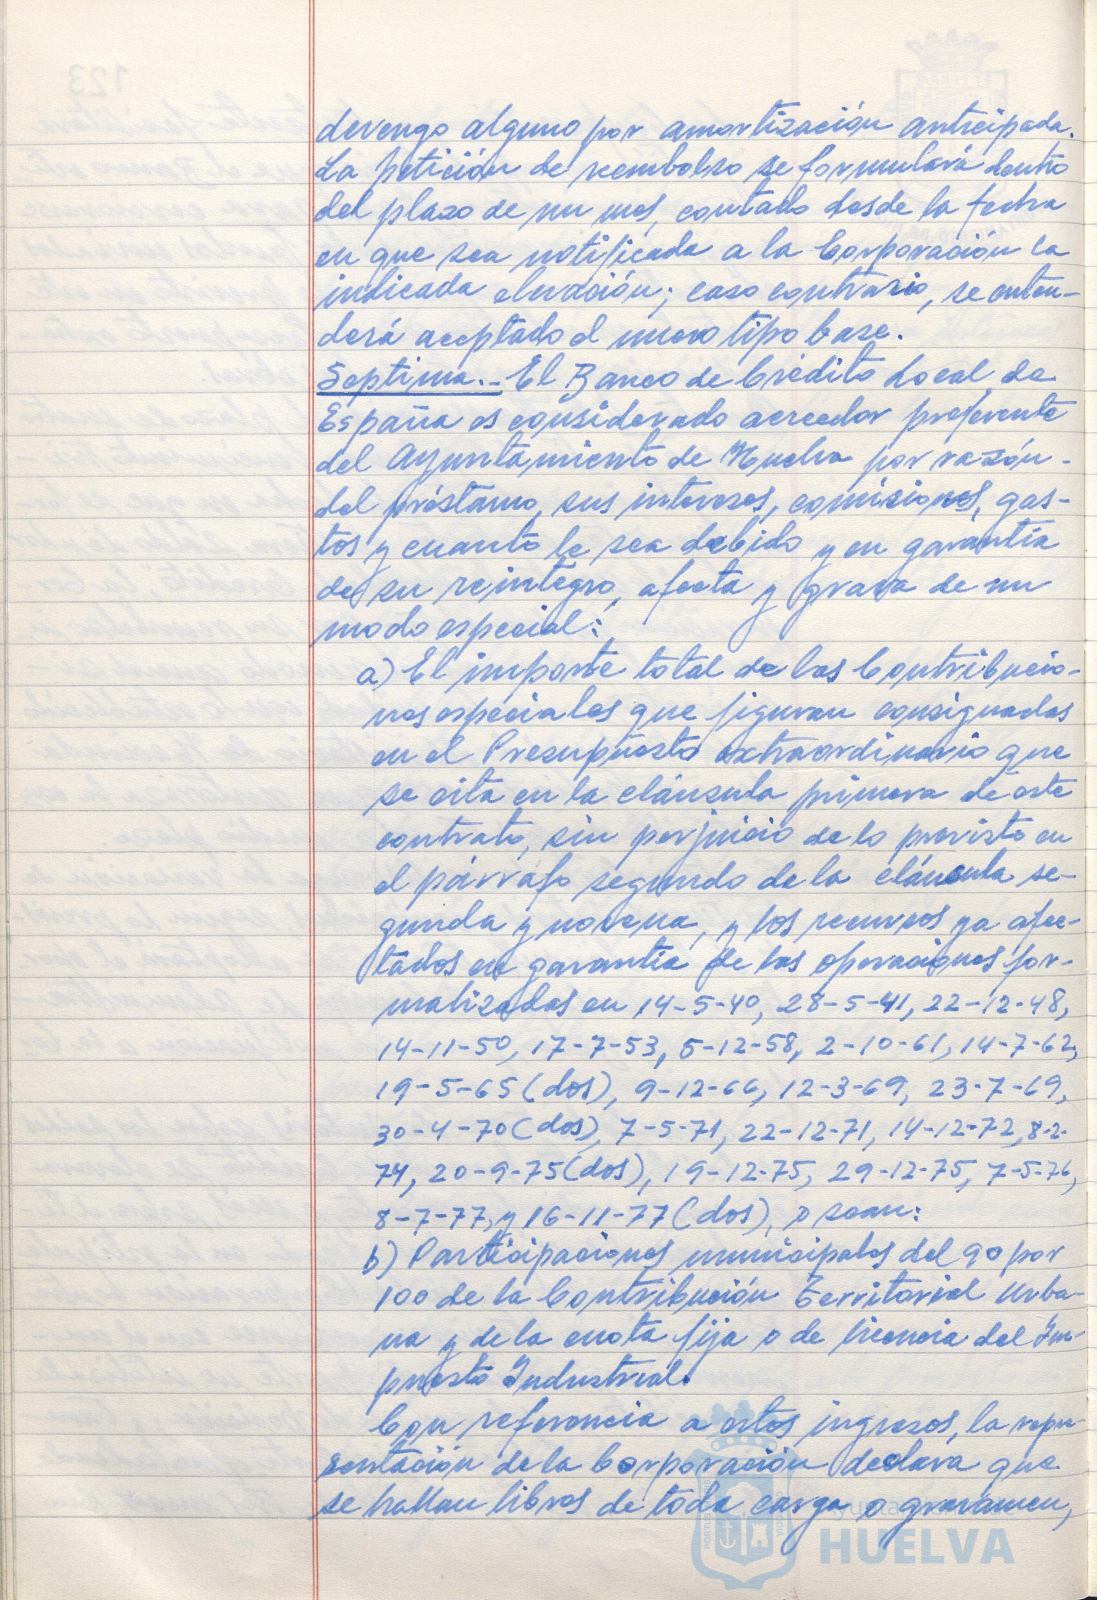 devengo alguno por amortización anticipada.
La petición de reembolso se formulará dentro
del plazo de un mes, contado desde la fecha
en que sea notificada a la Corporación la
indicada elevación; caso contrario, se enten-
derá aceptado el nuevo tipo base.
Septima.- El Banco de Crédito Local de
España es considerado acreedor preferente
del Ayuntamiento de Huelva por razón-
del préstamo, sus intereses, comisiones, gas-
tos y cuanto le sea debido y en garantía
de su reintegro, afecta y grava de un
modo especial:
a) El importe total de las Contribucio-
nes especiales que figuran consignadas
en el Presupuesto extraordinario que
se cita en la cláusula primera de este
contrato, sin perjuicio de lo previsto en
el párrafo segundo de la cláusula se-
gunda y novena, y los recursos ya afec-
tados en garantía de las operaciones for-
malizadas en 14-5-40, 28-5-41, 22-12-48,
14-11-50, 17-7-53, 5-12-58, 2-10-61, 14-7-62,
19-5-65 (dos), 9-12-66, 12-3-69, 23-7-69,
30-4-70 (dos), 7-5-71, 22-12-71, 14-12-72, 8-2-
74, 20-9-75 (dos), 19-12-75, 29-12-75, 7-5-76,
8-7-77, y 16-11-77 (dos), o sean:
b) Participaciones municipales del 90 por
100 de la Contribución Territorial Urba-
na y de la cuota fija o de licencia del Im-
puesto Industrial.
Con referencia a estos ingresos, la repre-
sentación de la Corporación declara que
se hallan libres de toda carga o gravámen,
HUELVA
123